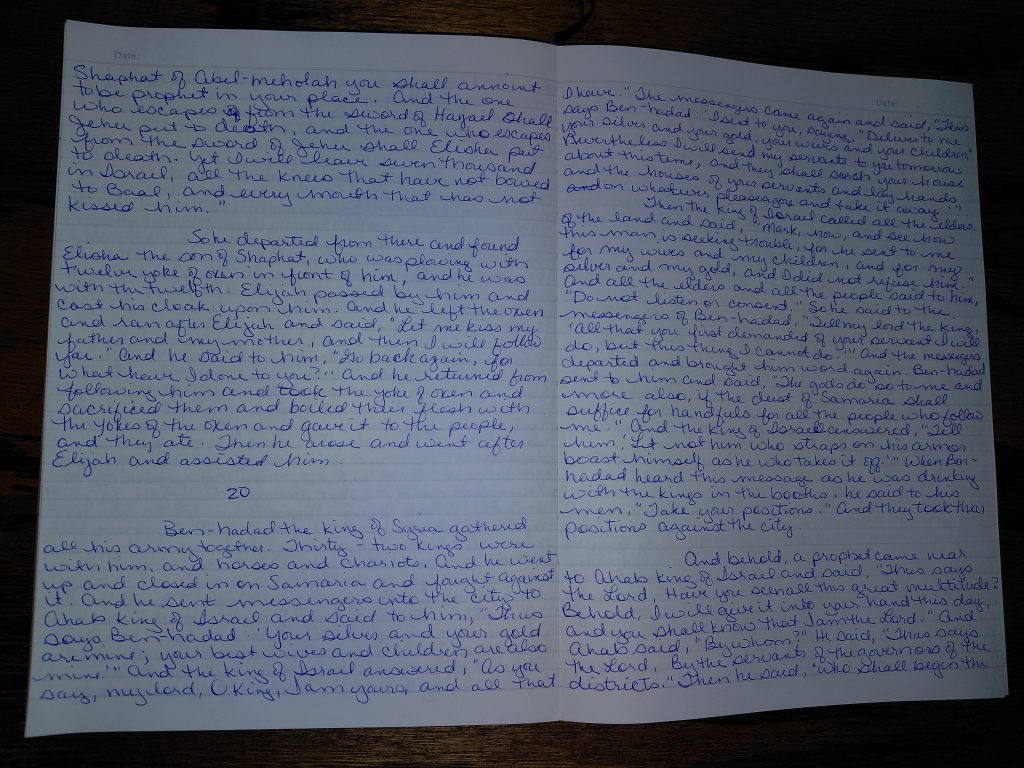 Date:
Shaphat of Abel-meholah you shall annoint
to be prophet in your place. And the one
who escapes from the sword of Hazael shall
Jehu put to death, and the one who escapes
from the sword of Jehu shall Elisha put
to death. Yet I will leave seven thousand
in Israel, all the knees that have not bowed
to Baal, and every mouth that has not
kissed him."
So he departed from there and found
Elisha the son of Shaphat, who was plowing with
twelve yoke of oxen in front of him, and he was
with the twelfth. Elijah passed by him and
cast his cloak upon him. And he left the oxen
and ran after Elijah and said, "Let me kiss my
father and my mother, and then I will follow
you." And he said to him, "Go back again, for
what have I done to you?" And he returned from
following him and took the yoke of oxen and
sacrificed them and boiled their flesh with
the yokes of the oxen and gave it to the people,
and they ate. Then he arose and went after
Elijah and assisted him.
20
Ben-hadad the king of Syria gathered
all his army together. Thirty-two kings were
with him, and horses and chariots. And he went
up and closed in on Samaria and fought against
it. And he sent messengers into the city to
Ahab king of Israel and said to him, "Thus
says Ben-hadad: 'Your silver and your gold
are mine; your best wives and children are also
mine.'" And the king of Israel answered, "As you
say, my lord, O King, I am yours, and all that
Date:
I have." The messengers came again and said, "Thus
says Ben-hadad: 'I sent to you, saying, "Deliver to me
your silver and your gold, your wives and your children."
Nevertheless I will send my servants to you tomorrow
about this time, and they shall search your house
and the houses of your servants and lay hands
on whatever pleases you and take it away.'"
Then the King of Israel called all the elders
of the land and said, "Mark, now, and see how
this man is seeking trouble, for he sent to me
for my wives and my children, and for my
silver and my gold, and I did not refuse him."
And all the elders and all the people said to him,
"Do not listen or consent." So he said to the
messengers of Ben-hadad, "Tell my lord the King,
'All that you first demanded of your servant I will
do, but this thing I cannot do.'" And the messengers
departed and brought him word again. Ben-hadad
sent to him and said, "The gods do so to me and
more also, if the dust of Samaria shall
suffice for handfuls for all the people who follow
me." And the king of Israel answered, "Tell
him, 'Let not him who straps on his armor
boast himself as he who takes it off.'" When Ben-
hadad heard this message as he was drinking
with the kings in the booths, he said to his
men, "Take your positions." And they took their
positions against the city.
And behold, a prophet came near
to Ahab king of Israel and said, "Thus says
the Lord, Have you seen all this great multitude?
Behold, I will give it into your hand this day,
and you shall know that I am the Lord." And
Ahab said, "By whom?" He said, "Thus says
the Lord, By the servants of the governors of the
districts." Then he said, "Who shall begin the